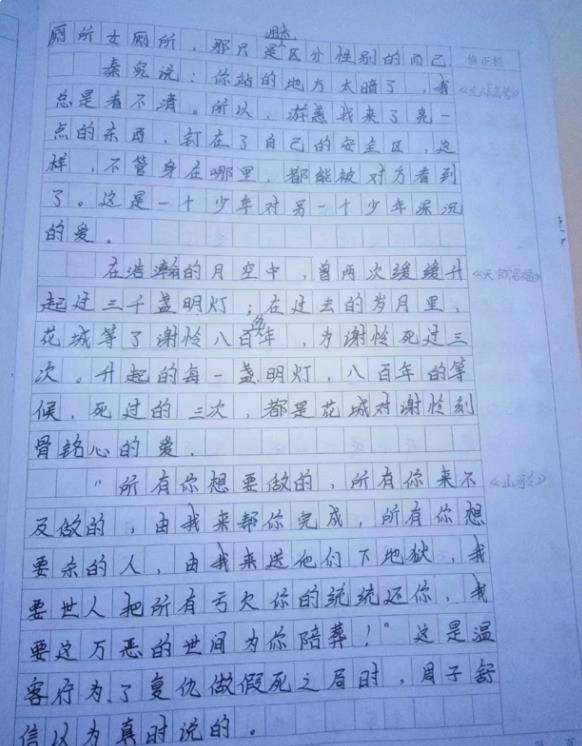 厕所女厕所，那只是用来区分性别的而已。
修正栏
秦究说：你站的地方太暗了，我
《全球高考》
总是看不清。所以，游惑找来了亮一
点的东西，钉在了自己的安全区，这
样，不管身在哪里，都能被对方看到
了。这是一个少年对另一个少年深沉
的爱。
在浩瀚的月空中，曾两次缓缓升
《天官赐福》
起过三千盏明灯；在过去的岁月里，
花城等了谢怜八百多年，为谢怜死过三
次。升起的每一盏明灯，八百年的等
候，死过的三次，都是花城对谢怜刻
骨铭心的爱。
"所有你想要做的，所有你来不
《山河令》
及做的，由我来帮你完成，所有你想
要杀的人，由我来送他们下地狱，我
要世人把所有亏欠你的统统还你，我
要这万恶的世间为你陪葬！"这是温
客行为了复仇做假死之局时，周子舒
信以为真时说的。